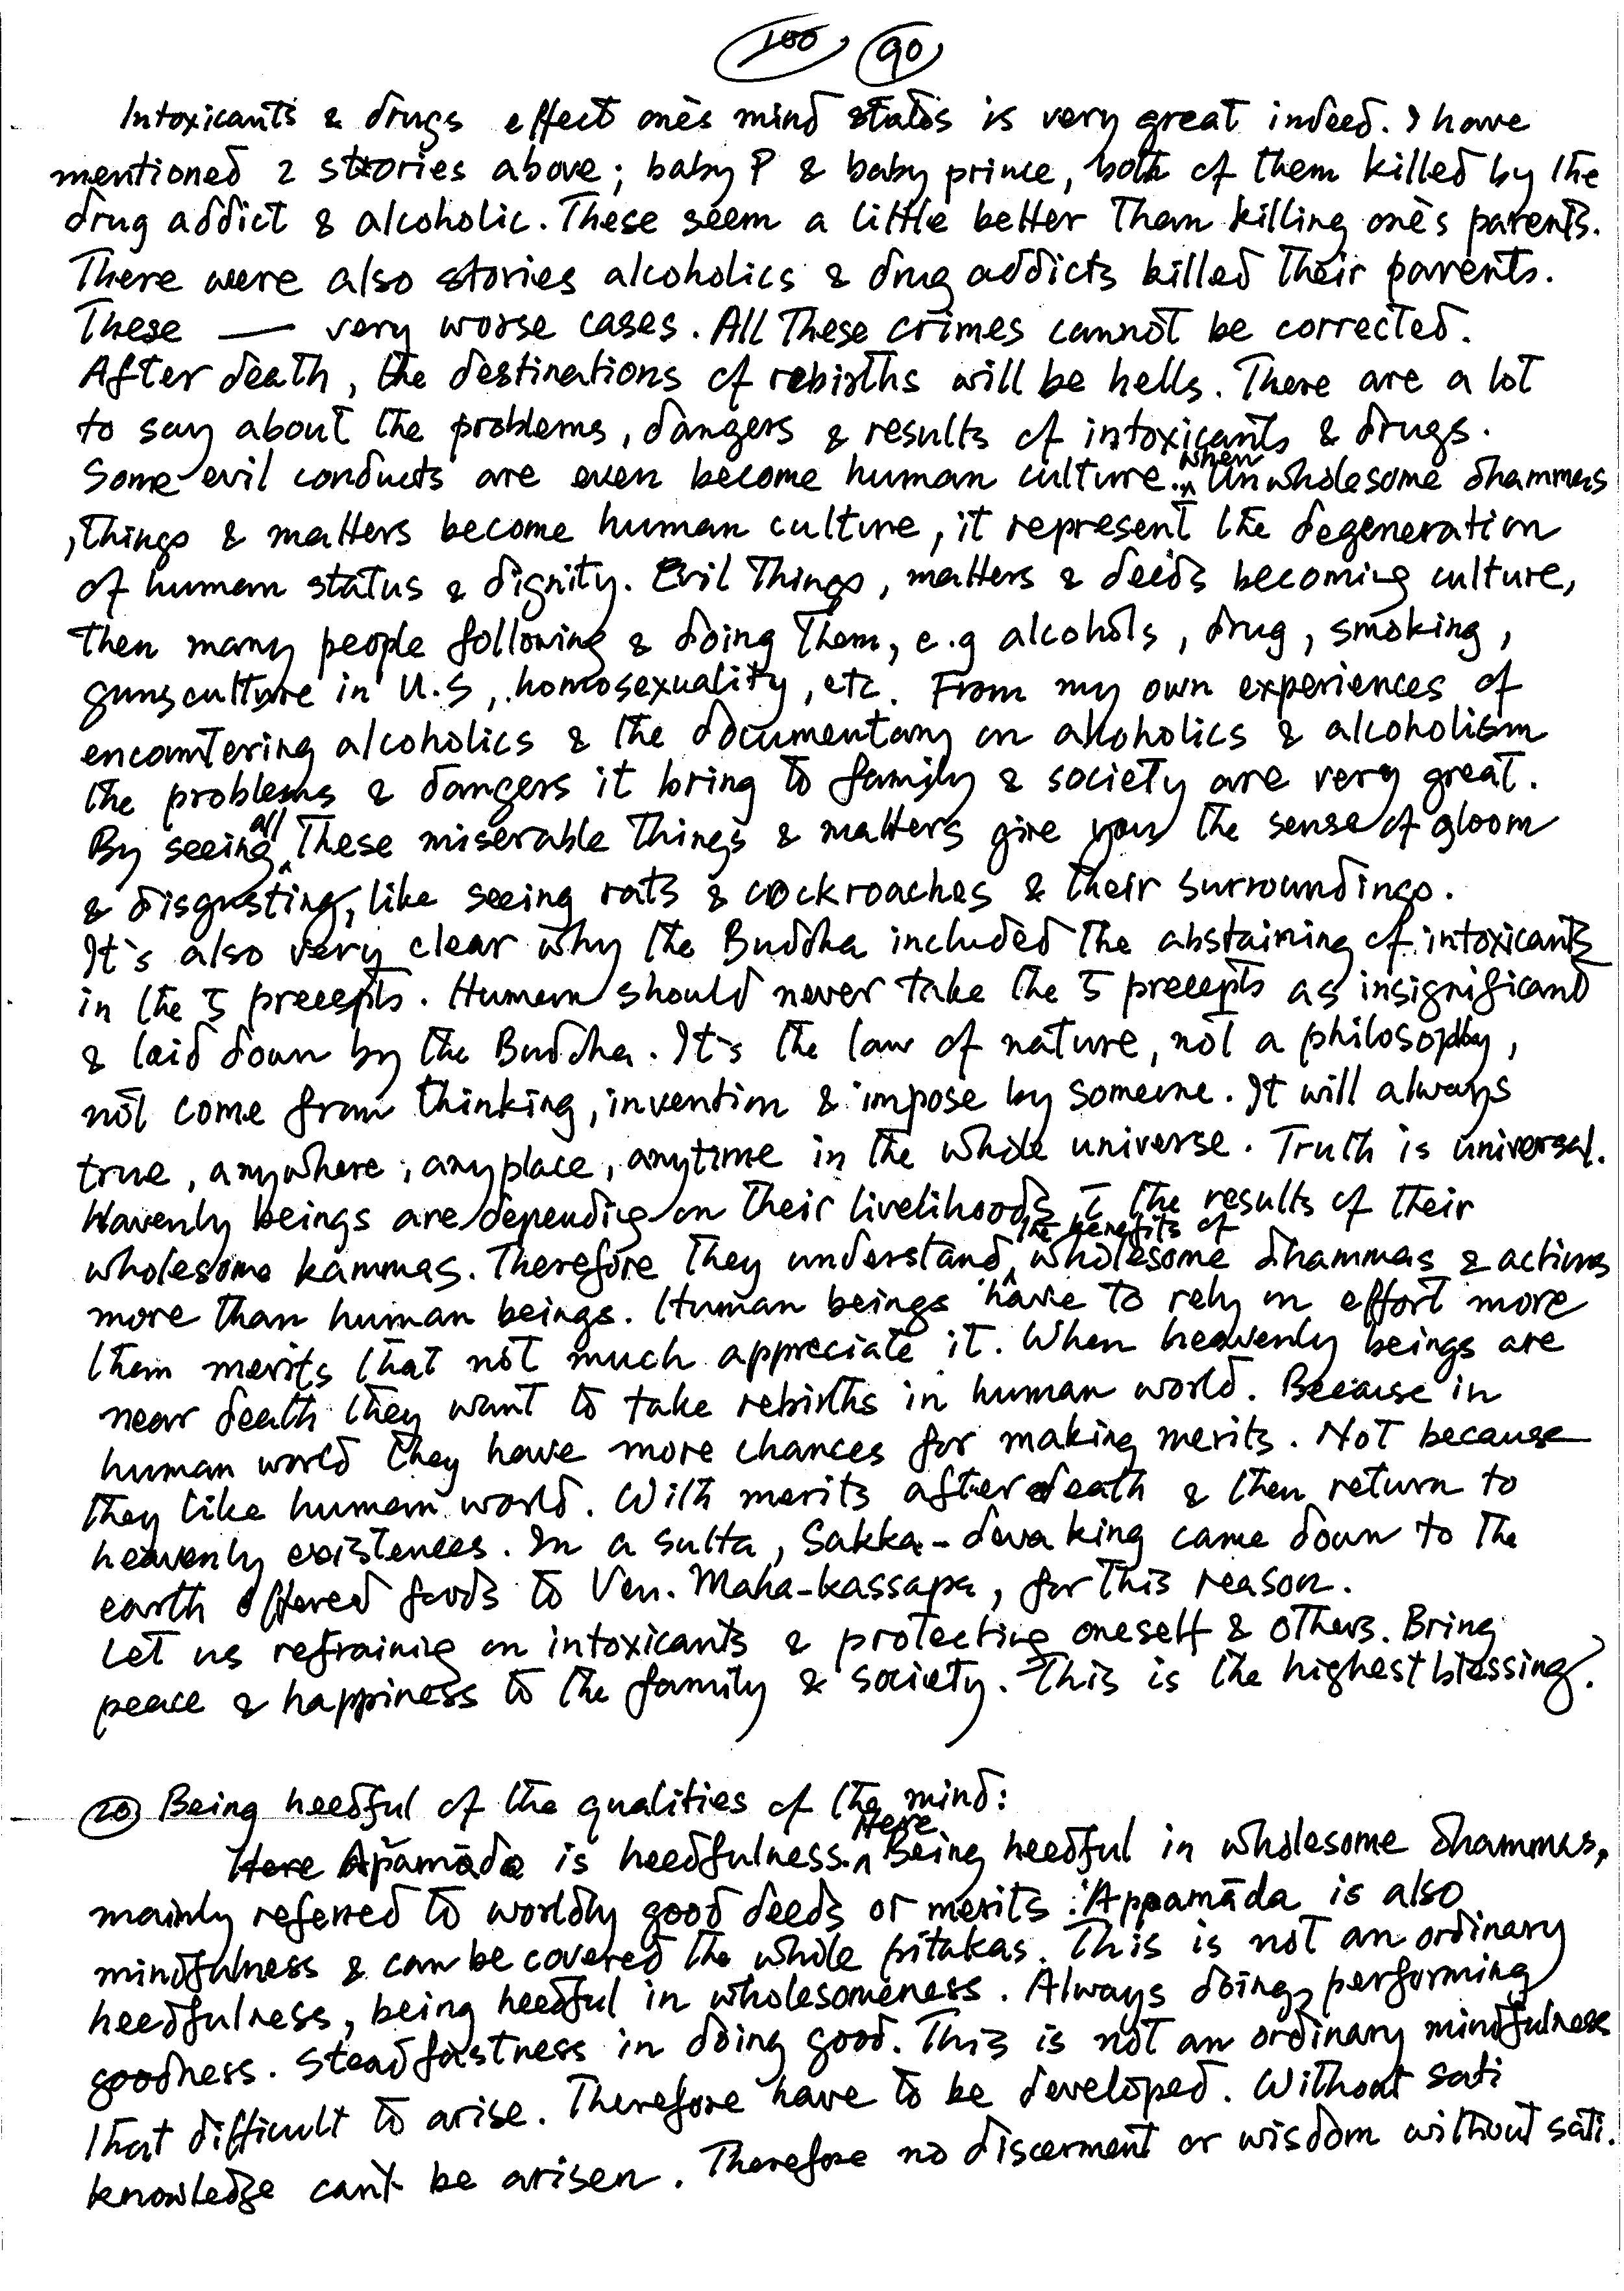 100, 90
Intoxicants & drugs effect one's mind states is very great indeed. I have
mentioned 2 stories above; baby P & baby prince, both of them killed by the
drug addict & alcoholic. These seem a little better than killing one's parents.
There were also stories alcoholics & drug addicts killed their parents.
These — very worse cases. All these crimes cannot be corrected.
After death, the destinations of rebirths will be hells. There are a lot
to say about the problems, dangers & results of intoxicants & drugs.
Some evil conducts are even become human culture. When Unwholesome dhammas
, things & matters become human culture, it represent the degeneration
of human status & dignity. Evil things, matters & deeds becoming culture,
then many people following & doing them, e.g alcohols, drug, smoking,
guns culture in U.S, homosexuality, etc. From my own experiences of
encountering alcoholics & the documentary on alcoholics & alcoholism
the problems & dangers it bring to family & society are very great.
By seeing all these miserable things & matters give you the sense of gloom
& disgusting, like seeing rats & cockroaches & their surroundings.
It's also very clear why the Buddha included the abstaining of intoxicants
in the 5 precepts. Human should never take the 5 precepts as insignificant
& laid down by the Buddha. It's the law of nature, not a philosophy,
not come from thinking, invention & impose by someone. It will always
true, anywhere, any place, anytime in the whole universe. Truth is universal.
Havenly beings are depending on their livelihoods the results of their
wholesome kammas. Therefore they understand the benefits of wholesome dhammas & actions
more than human beings. Human beings have to rely on effort more
them merits that not much appreciate it. When heavenly beings are
near death they want to take rebirths in human world. Because in
human world they have more chances for making merits. Not because
they like human world. With merits after death & then return to
heavenly existences. In a sutta, Sakka-deva king came down to the
earth offered foods to Ven. Maha-kassapa, for this reason.
Let us refraining on intoxicants & protecting oneself & others. Bring
peace & happiness to the family & society. This is the highest blessing.
20 Being heedful of the qualities of the mind:
Here Apamāda is heedfulness. Here Being heedful in wholesome dhammas,
mainly referred to worldly good deeds or merits. Appamāda is also
mindfulness & can be covered the whole pitakas. This is not an ordinary
heedfulness, being heedful in wholesomeness. Always doing, performing
goodness. Steadfastness in doing good. This is not an ordinary mindfulness
that difficult to arise. Therefore have to be developed. Without sati
knowledge can't be arisen. Therefore no discernment or wisdom without sati.